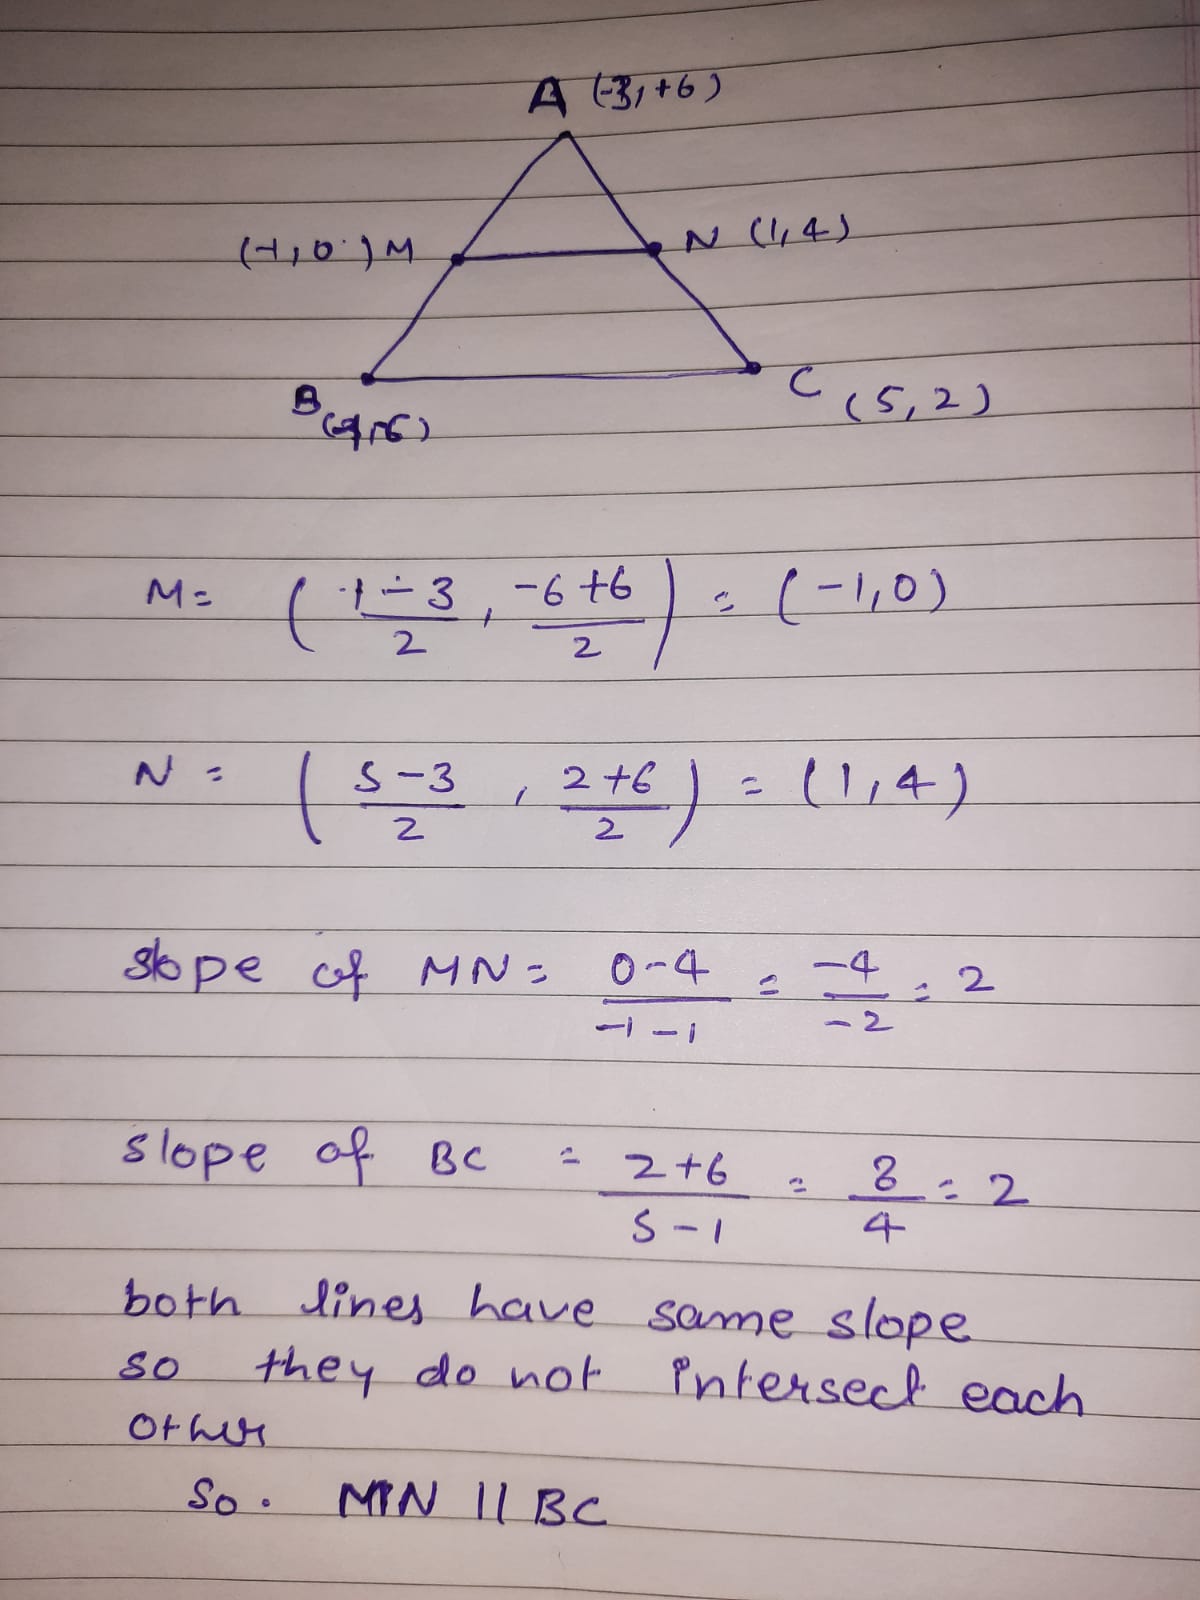 A (-3,+6)
(-1,0) M
N (1,4)
B
C (5,2)
M = ( 1-3/2 , -6+6/2 ) = (-1,0)
N = ( 5-3/2 , 2+6/2 ) = (1,4)
slope of MN = 0-4/-1-1 = -4/-2 = 2
slope of BC = 2+6/5-1 = 8/4 = 2
both lines have same slope
so they do not intersect each
other
So. MN || BC